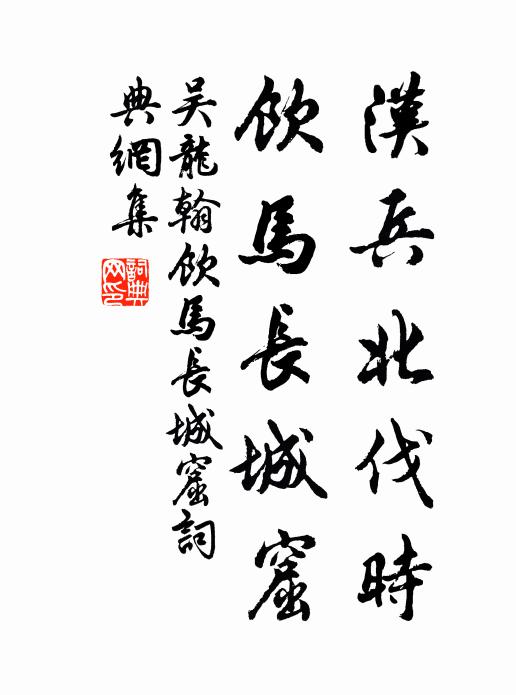 漢兵北伐時
飲馬長城窟
吴龍翰飲馬長城窟詞
典網集
詞典網印